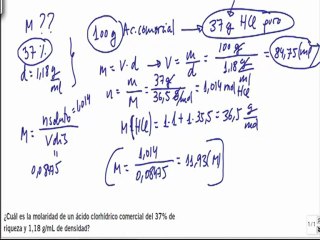 M ??
37 %
d = 1,18 g/ml
100g Ac. comercial → 37g HCl puro
M = V · d → V = m/d = 100 g / 1,18 g/ml = 84,75 (ml)
n = m/M = 37 g / 36,5 g/mol = 1,014 mol HCl
M (HCl) = 1·1 + 1·35,5 = 36,5 g/mol
M = nsoluto = 1,014 / Vdis = 0,08475
M = 1,014 / 0,08475 = 11,93 (M)
¿Cuál es la molaridad de un ácido clorhídrico comercial del 37% de
riqueza y 1,18 g/mL de densidad?